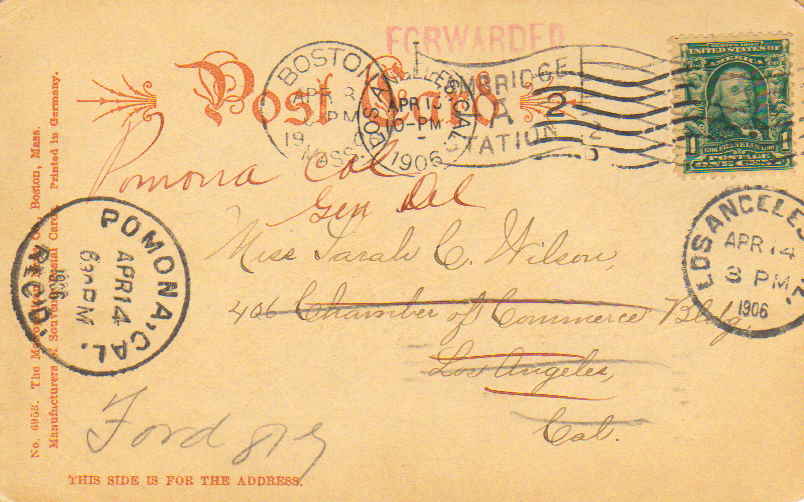 FORWARDED
Post Card
BOSTON
APR 8
PM
19
MASS.
LOS ANGELES, CAL.
APR 13
10-PM
1906
CAMBRIDGE
A
STATION
2
UNITED STATES OF
AMERICA
1 1
POSTAGE
Pomona Cal
Gen Del
Miss Sarah C. Wilson,
406 Chamber of Commerce Bldg,
Los Angeles,
Cal.
POMONA, CAL.
APR 14
630 PM
1906
REC'D.
LOS ANGELES
APR 14
3 PM
1906
No. 6958. The Co., Boston, Mass.
Manufacturers of Souvenir Postal Cards. Printed in Germany.
THIS SIDE IS FOR THE ADDRESS.